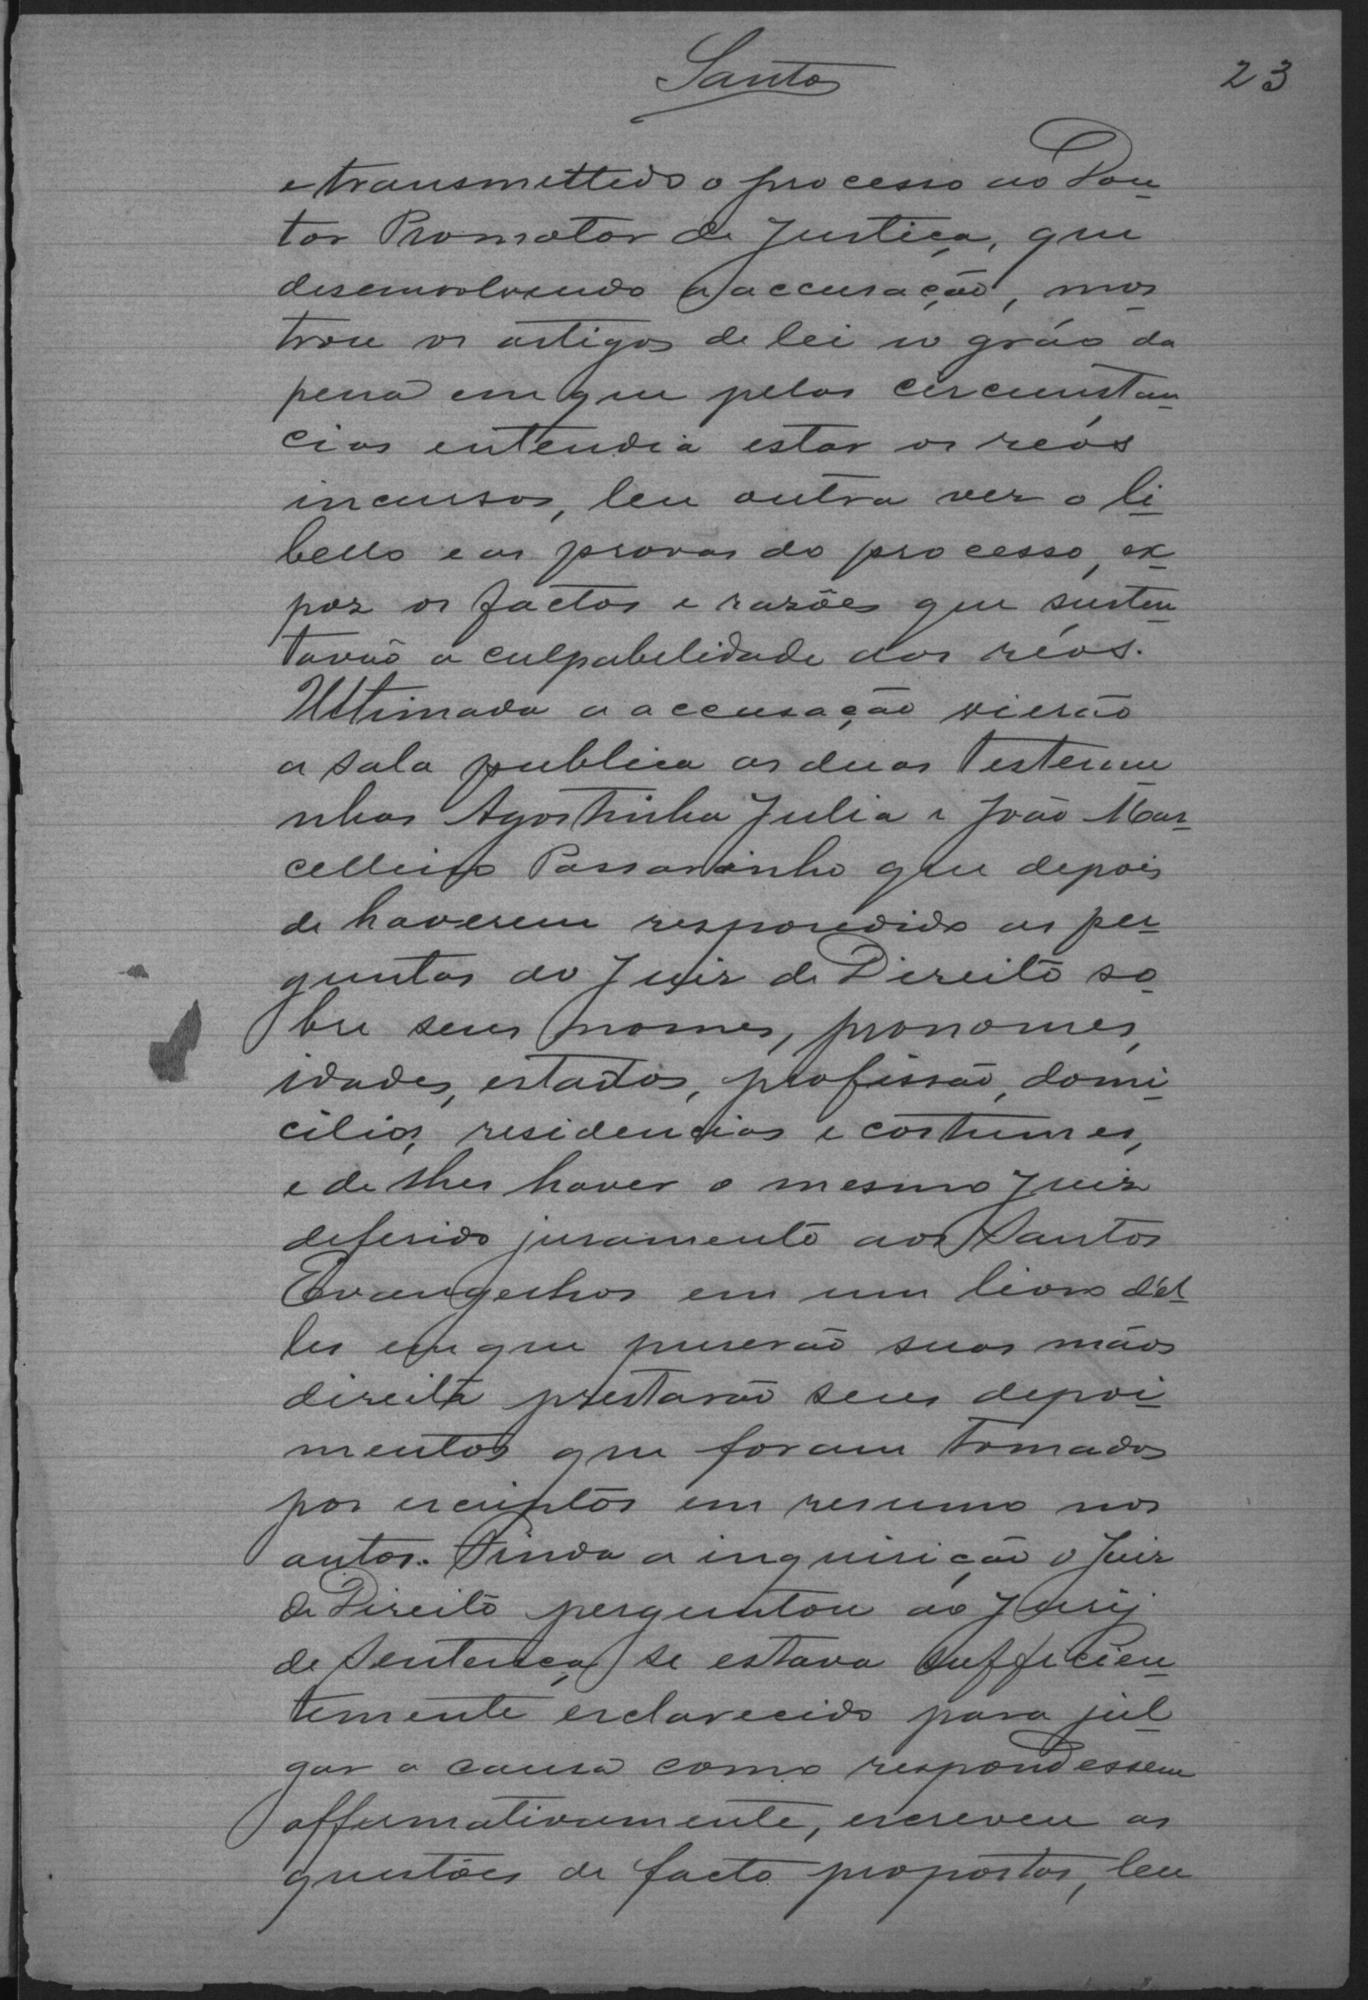 Santos
23
e transmettido o processo ao Dou-
tor Promotor de Justiça, que
desenvolvendo a accusação, mos-
trou os artigos de lei e o gráo da
pena em que pelas circumstan-
cias entendia estar os reós
incursos, leu outra vez o li-
bello e as provas do processo, ex-
poz os factos e razões que susten-
tavão a culpabelidade dos réos.
Ultimada a accusação vierão
a sala publica as duas testemu-
nhas Agostinha Julia e João Mar-
cellino Passarinho que depois
de haverem respondido as per-
guntas do Juiz de Direito so-
bre seus nomes, pronomes,
idades, estados, profissão, domi-
cilios, residencias e costumes,
e de lhes haver o mesmo Juiz
deferido juramento aos Santos
Evangelhos em um livro d'el-
les em que puserão suas mãos
direita prestarão seus depoi-
mentos que foram tomados
por escriptos em resumo nos
autos. Finda a inquirição o Juiz
de Direito perguntou ao Jury
de Sentença se estava sufficien-
temente esclarecido para jul-
gar a causa como respondessem
affirmativamente, escreveu as
questões de facto propostas, leu